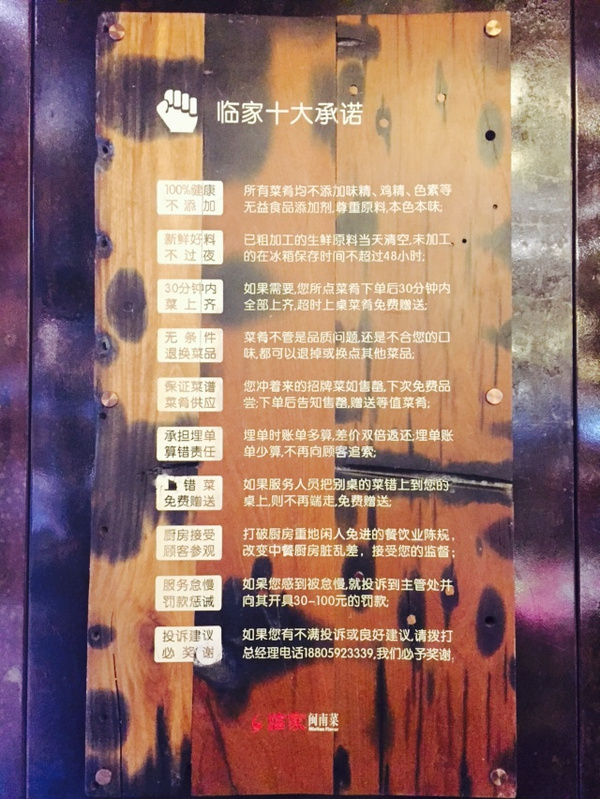 临家十大承诺
100%健康
不添加
所有菜肴均不添加味精、鸡精、色素等
无益食品添加剂,尊重原料,本色本味;
新鲜好料
不过夜
已粗加工的生鲜原料当天清空,未加工
的在冰箱保存时间不超过48小时;
30分钟内
菜上齐
如果需要,您所点菜肴下单后30分钟内
全部上齐,超时上桌菜肴免费赠送;
无条件
退换菜品
菜肴不管是品质问题,还是不合您的口
味,都可以退掉或换点其他菜品;
保证菜谱
菜肴供应
您冲着来的招牌菜如售罄,下次免费品
尝;下单后告知售罄,赠送等值菜肴;
承担埋单
算错责任
埋单时账单多算,差价双倍返还;埋单账
单少算,不再向顾客追索;
上错菜
免费赠送
如果服务人员把别桌的菜错上到您的
桌上,则不再端走,免费赠送;
厨房接受
顾客参观
打破厨房重地闲人免进的餐饮业陈规,
改变中餐厨房脏乱差，接受您的监督;
服务怠慢
罚款惩诫
如果您感到被怠慢,就投诉到主管处并
向其开具30-100元的罚款;
投诉建议
必奖谢
如果您有不满投诉或良好建议,请拨打
总经理电话18805923339,我们必予奖谢;
临家 闽南菜